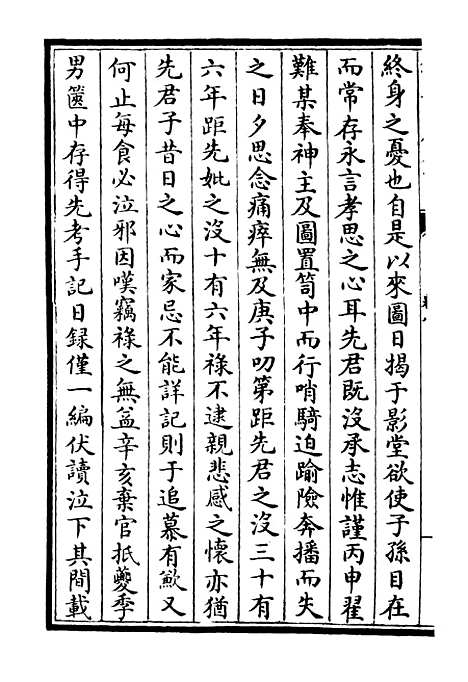 終身之憂也自是以來圖日揭于影堂欲使子孫目在
而常存永言孝思之心耳先君既沒承志惟謹丙申翟
難某奉神主及圖置笥中而行哨騎迫踰險奔播而失
之日夕思念痛瘁無及庚子叨第距先君之沒三十有
六年距先妣之沒十有六年祿不逮親悲感之懷亦猶
先君子昔日之心而家忌不能詳記則于追慕有歉又
何止每食必泣邪因嘆竊祿之無益辛亥棄官抵夔季
男篋中存得先考手記日録僅一編伏讀泣下其間載